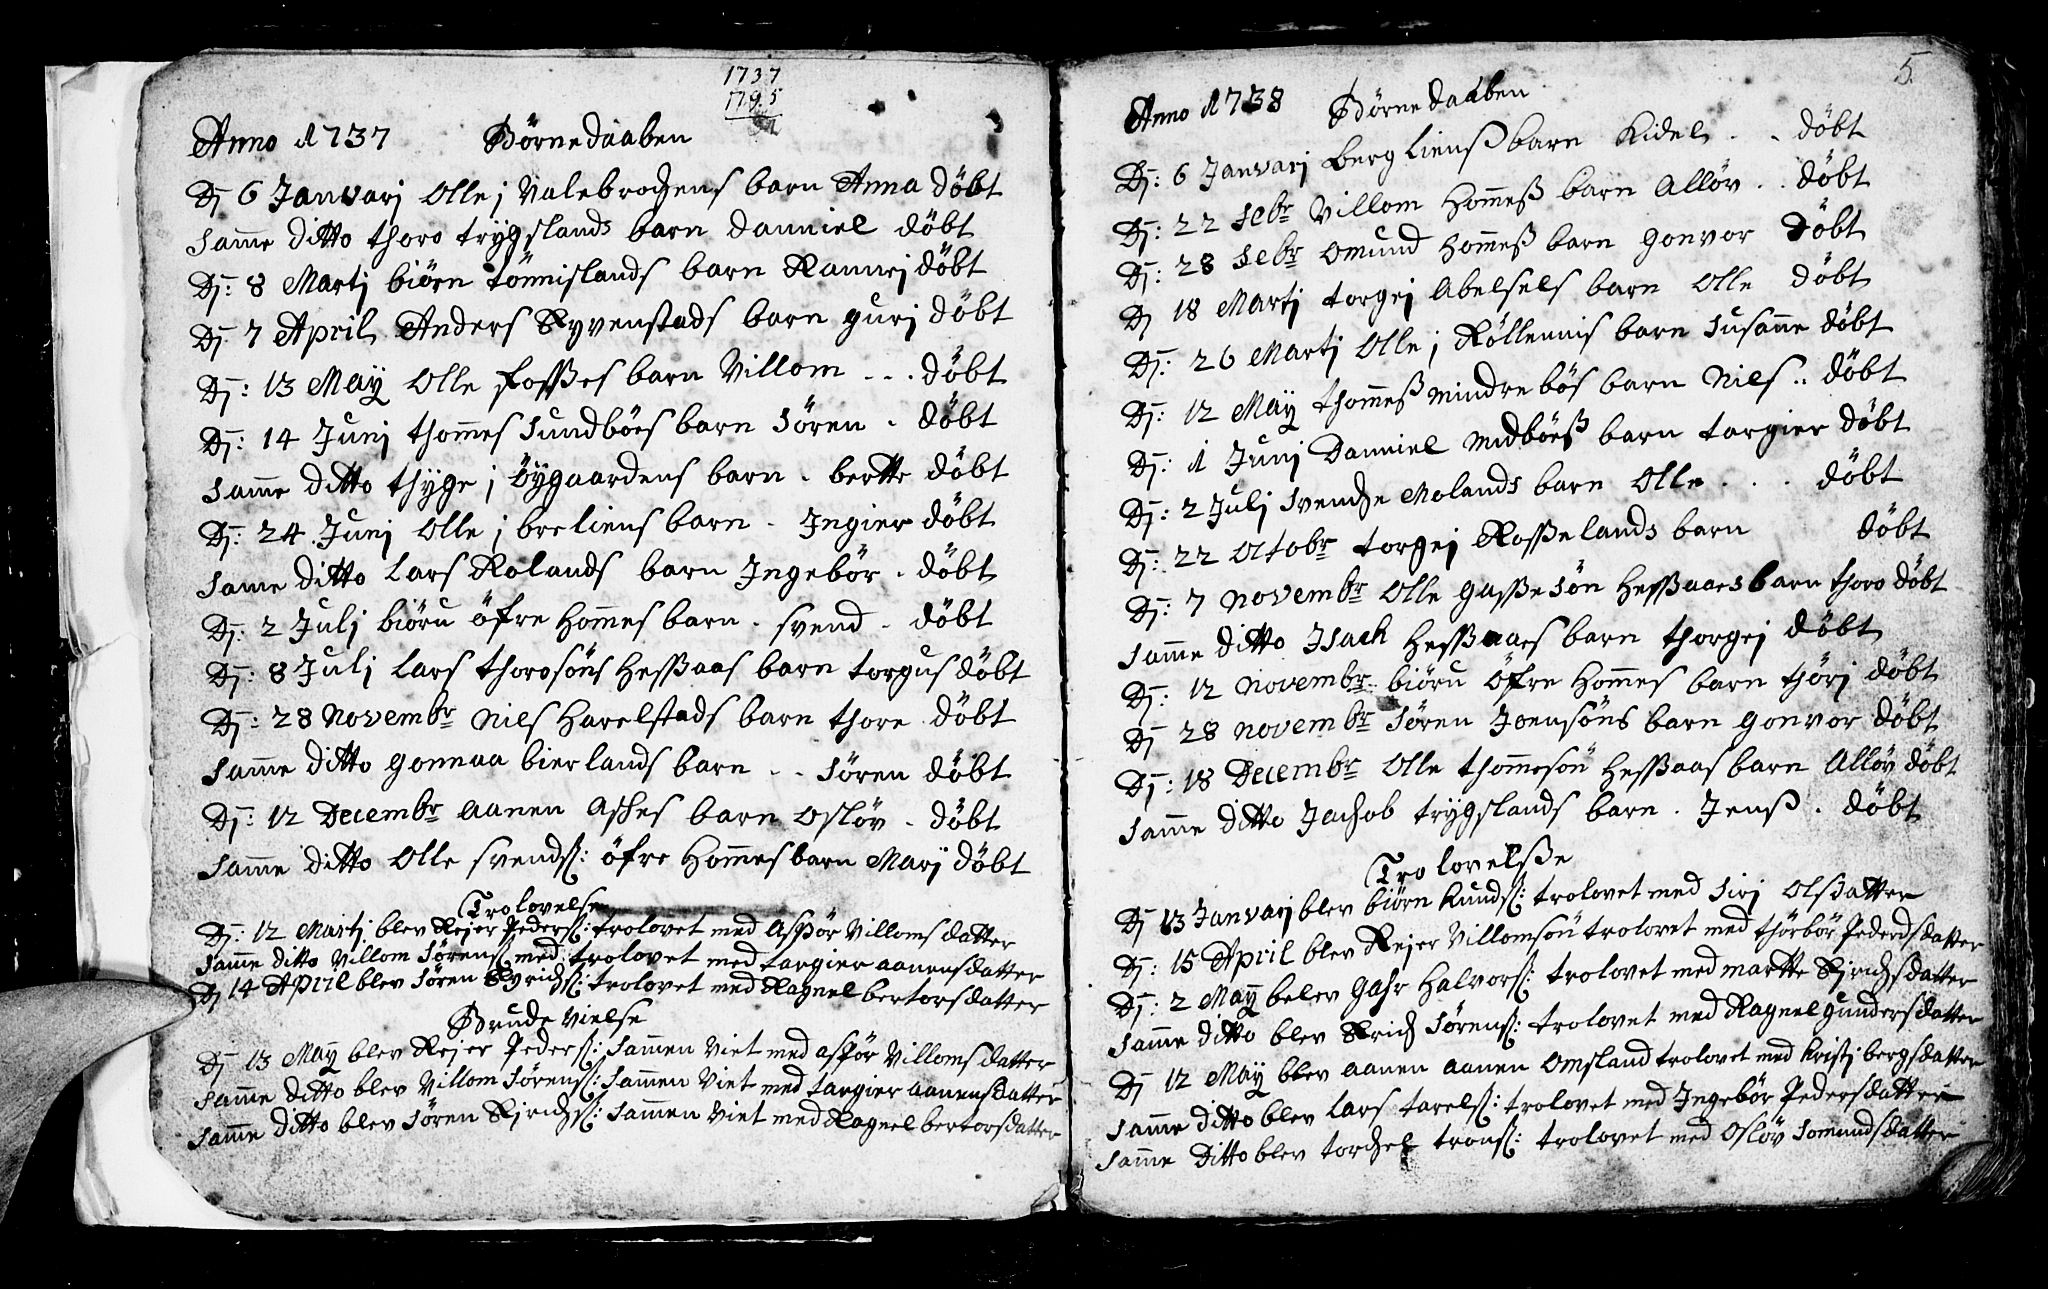 1737
1795
Anno 1737 Börnedaaben
Dj 6 Janvarj Olle j Valebrochens barn Anna döbt
Samme ditto thoro trygslands barn danniel döbt
Dj: 8 Martj biörn tönnislands barn Rannej döbt
Dj 7 April Anders Ryvenstads barn gurj döbt
Dj: 13 Maÿ Olle fosses barn Villom - - . döbt
Dj: 14 Junj thommes Sundböes barn Sören . döbt
Samme ditto thÿge j Öÿgaardens barn . bertte döbt
Dj: 24 Junj Olle j breliens barn . Ingier döbt
Samme ditto Lars Rolands barn Ingebör . döbt
Dj: 2 Julj biöru öfre Hommes barn . svend . döbt
Dj: 8 Julj Lars thorosöns Hessaas barn torgus döbt
Dj: 28 Novembr Niels Harelstads barn thore döbt
Samme ditto gonnaa bierlands barn . . Sören döbt
Dj: 12 Decembr aanen Askes barn Oslöv . döbt
Samme ditto Olle svends: öfre Hommes barn Marj döbt
Trolovelse
Dj: 12 Martj blev Rejer Peders: trolovet med Aspör Villoms datter
Samme ditto Villom Sörens: med: trolovet med targier aanensdatter
Dj 14 April blev Sören Ryrichs: trolovet med Ragnel bertorsdatter
Brude Vielse
Dj 13 Maÿ blev Rejer Peders: Sammen Viet med aspör Villoms datter
Samme ditto blev Villom Sörens: Sammen Viet med targier aanensdatter
Samme ditto blev Sören Rjrichs: Sammen Viet med Ragnel bertorsdatter
5
Anno 1738 Börnedaaben
Dj: 6 Janvarj berg Liens barn Kidel . . döbt
Dj: 22 Febr Villom Hommeß barn Allöv . . döbt
Dj: 28 Febr Omund Hommeß barn gonvor döbt
Dj 18 Martj torgej Abelsels barn Olle döbt
Dj: 26 Martj Olle j Röllennis barn Susanne döbt
Dj: 12 Maÿ thommeß mindrebös barn Niels .. döbt
Dj: 1 Junj Danniel midböeß barn targier döbt
Dj: 2 Julj Svenche Molands barn Olle . . . döbt
Dj: 22 Octobr torgej Rosselands barn döbt
Dj: 7 Novembr Olle gasse sön Hessaaes barn thoro döbt
Samme ditto Isach Hessaaes barn thorgej döbt
Dj: 12 Novembr biöru Öfre Hommes barn thörj döbt
Dj 28 novembr Sören Joensöns barn gonvor döbt
Dj: 18 Decembr Olle thommesön Hessaas barn Allöv döbt
Samme ditto Jachob trygslands barn . Jenß . döbt
Trolovelße
Dj 13 Janvarj blev biörn Kunds: trolovet med Sirj Olsdatter
Dj: 15 April blev Rejer Villomsön trolovet med thörbör Pedersdatter
Dj: 2 Maÿ belev gahr Halvors: trolovet med martte Rjrichsdatter
Samme ditto blev Rrich Sörens: trolovet med Ragnel gundersdatter
Dj 12 Maÿ blev aanen aanen Omsland trolovet med Kristj bergsdatter
Samme ditto blev Lars tarels: trolovet med Ingebör Pedersdatter
Samme ditto blev torchel trons: trolovet med Oslöv Somundsdatter